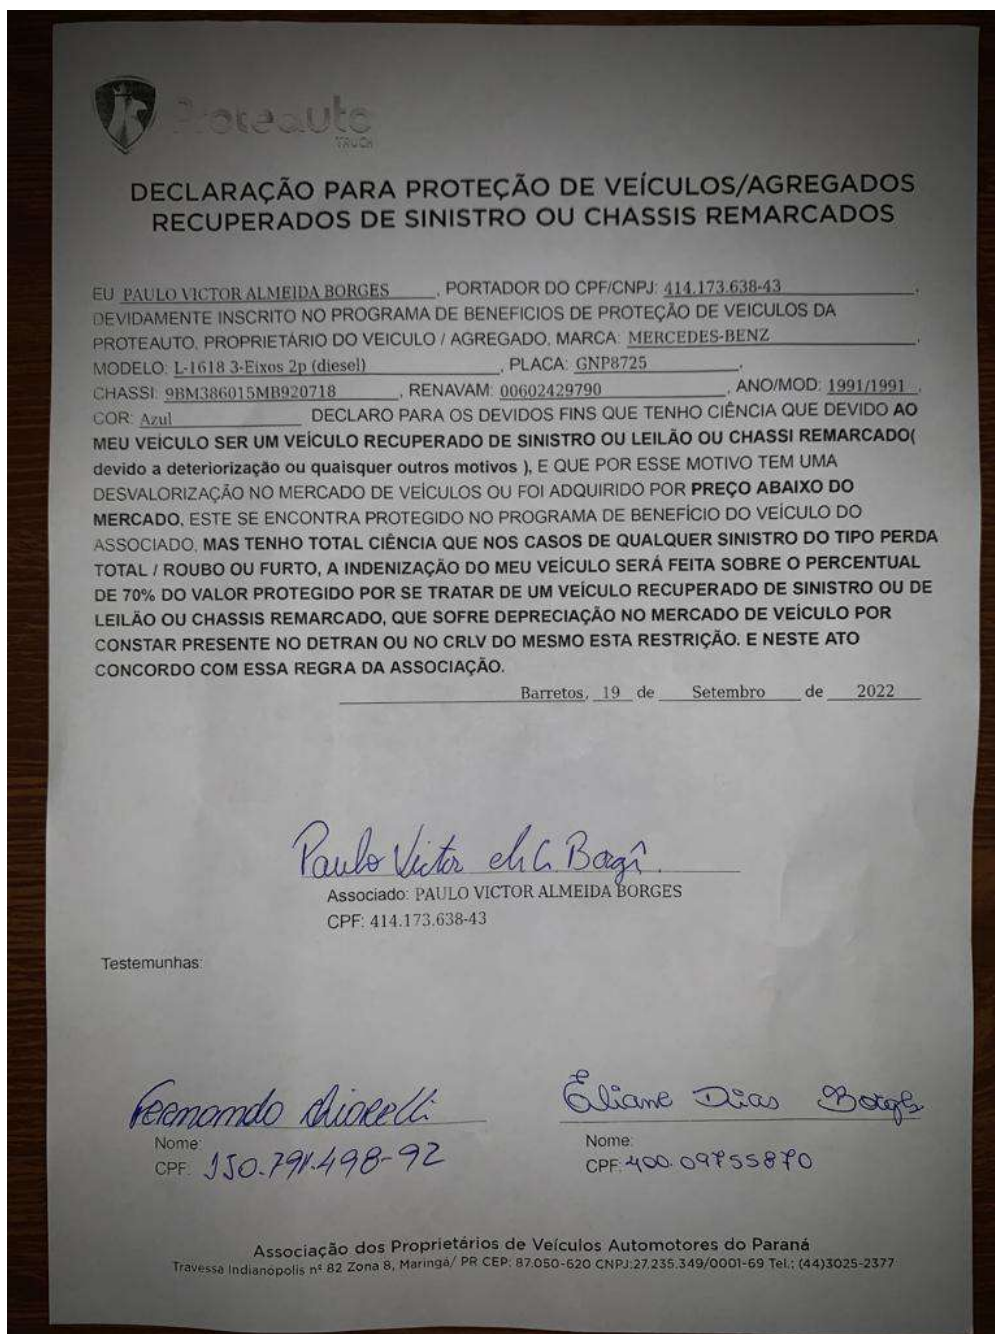 Proteauto
TRUCK
DECLARAÇÃO PARA PROTEÇÃO DE VEÍCULOS/AGREGADOS
RECUPERADOS DE SINISTRO OU CHASSIS REMARCADOS
EU PAULO VICTOR ALMEIDA BORGES, PORTADOR DO CPF/CNPJ: 414.173.638-43,
DEVIDAMENTE INSCRITO NO PROGRAMA DE BENEFICIOS DE PROTEÇÃO DE VEICULOS DA
PROTEAUTO, PROPRIETÁRIO DO VEICULO / AGREGADO, MARCA: MERCEDES-BENZ,
MODELO: L-1618 3-Eixos 2p (diesel), PLACA: GNP8725,
CHASSI: 9BM386015MB920718, RENAVAM: 00602429790, ANO/MOD: 1991/1991,
COR: Azul DECLARO PARA OS DEVIDOS FINS QUE TENHO CIÊNCIA QUE DEVIDO AO
MEU VEÍCULO SER UM VEÍCULO RECUPERADO DE SINISTRO OU LEILÃO OU CHASSI REMARCADO(
devido a deteriorização ou quaisquer outros motivos ), E QUE POR ESSE MOTIVO TEM UMA
DESVALORIZAÇÃO NO MERCADO DE VEÍCULOS OU FOI ADQUIRIDO POR PREÇO ABAIXO DO
MERCADO, ESTE SE ENCONTRA PROTEGIDO NO PROGRAMA DE BENEFÍCIO DO VEÍCULO DO
ASSOCIADO, MAS TENHO TOTAL CIÊNCIA QUE NOS CASOS DE QUALQUER SINISTRO DO TIPO PERDA
TOTAL / ROUBO OU FURTO, A INDENIZAÇÃO DO MEU VEÍCULO SERÁ FEITA SOBRE O PERCENTUAL
DE 70% DO VALOR PROTEGIDO POR SE TRATAR DE UM VEÍCULO RECUPERADO DE SINISTRO OU DE
LEILÃO OU CHASSIS REMARCADO, QUE SOFRE DEPRECIAÇÃO NO MERCADO DE VEÍCULO POR
CONSTAR PRESENTE NO DETRAN OU NO CRLV DO MESMO ESTA RESTRIÇÃO. E NESTE ATO
CONCORDO COM ESSA REGRA DA ASSOCIAÇÃO.
Barretos, 19 de Setembro de 2022
Paulo Victor
Associado: PAULO VICTOR ALMEIDA BORGES
CPF: 414.173.638-43
Testemunhas:
Fernando Eliane Dias Borges
Nome: Nome:
CPF: CPF: 400.09755870
Associação dos Proprietários de Veículos Automotores do Paraná
Travessa Indianopolis nº 82 Zona 8, Maringá/ PR CEP: 87.050-620 CNPJ:27.235.349/0001-69 Tel.: (44)3025-2377